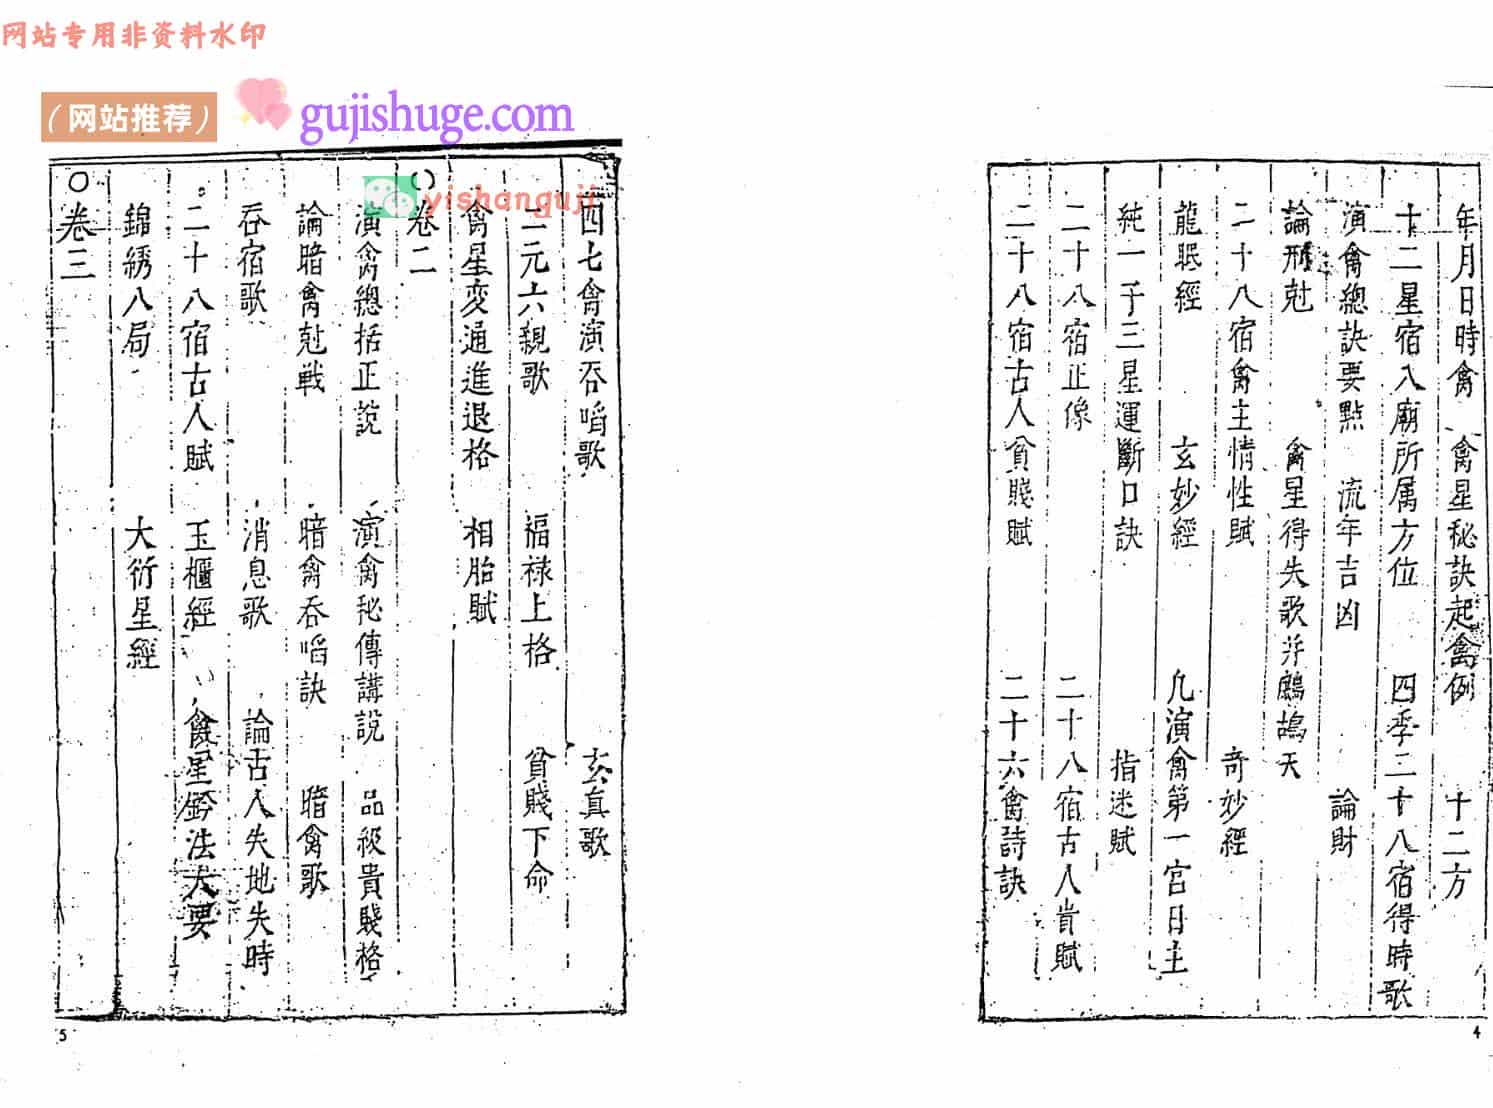 网站专用非资料水印
（网站推荐）
gujishuge.com
yishanguji
年月日時禽　禽星秘訣起禽例　十二方
十二星宿入廟所属方位　四季二十八宿得時歌
演禽總訣要點　流年吉凶　論財
論刑尅　禽星得失歌并鷓鴣天
二十八宿禽主情性賦　竒妙經
龍眠經　玄妙經　凡演禽第一宮日主
純一子三星運斷口訣　指迷賦
二十八宿正像　二十八宿古人肯賦
二十八宿古人貧賤賦　二十六禽詩訣
4
四七禽演吞啗歌　玄真歌
二元六親歌　福禄上格　貧賤下命
禽星変通進退格　相胎賦
○卷二
演禽總括正說　演禽秘傳講說　品級貴賤格
論暗禽尅戦　暗禽吞啗訣　暗禽歌
吞宿歌　消息歌　論古人失地失時
二十八宿古人賦　玉櫃經　禽星鈐法大要
錦綉八局　大衍星經
○卷三
5